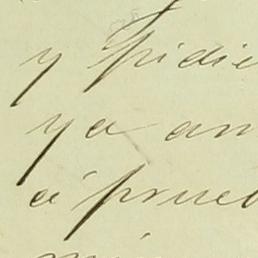 y pidie
ya an
á prueb